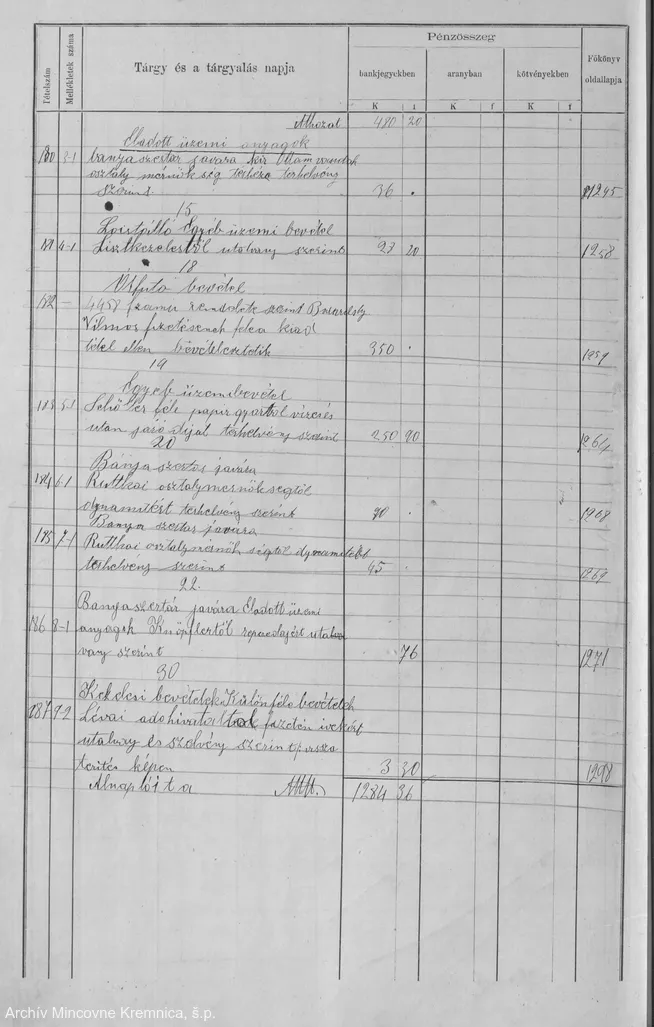 Pénzösszeg
Tételszám Mellékletek száma Tárgy és a tárgyalás napja bankjegyekben aranyban kötvényekben Főkönyv oldallapja
K f K f K f
Áthozat 480 20
Eladott üzemi anyagok
180 3-1 bányaszertár javára
osztály mérnökség terhére terhelvény
szerint. 36 . 1245
15
Egyéb üzemi bevétel
181 4-1 utalvány szerint 23 20 1258
18
Átfutó bevétel
182 - 4458 számú rendelete szint
Vilmos fizetésének fele a kiad
tétel ellen bevételeztetik 350 . 1259
19
Egyéb üzembevétel
183 5-1 féle papírgyártól vízesés
után járó díjat terhelvény szerint 250 90 1264
20
Bánya szertár javára
184 6-1 Ruttkai osztálymérnökségtől
dynamitért terhelvény szerint 90 . 1268
Bánya szertár javára
185 7-1 Ruttkai osztálymérnökségtől dynamitért
terhelvény szerint 45 . 1269
22.
Bányaszertár javára Eladott üzemi
186 8-1 anyagok Knöpflertől utalvány
szerint 76 1271
30
bevételek Különféle bevételek
187 9-2 Lévai adóhivataltól ívekért
utalvány és szelvény szerint
térítés képen 3 30 1298
1284 36
Archív Mincovne Kremnica, š.p.